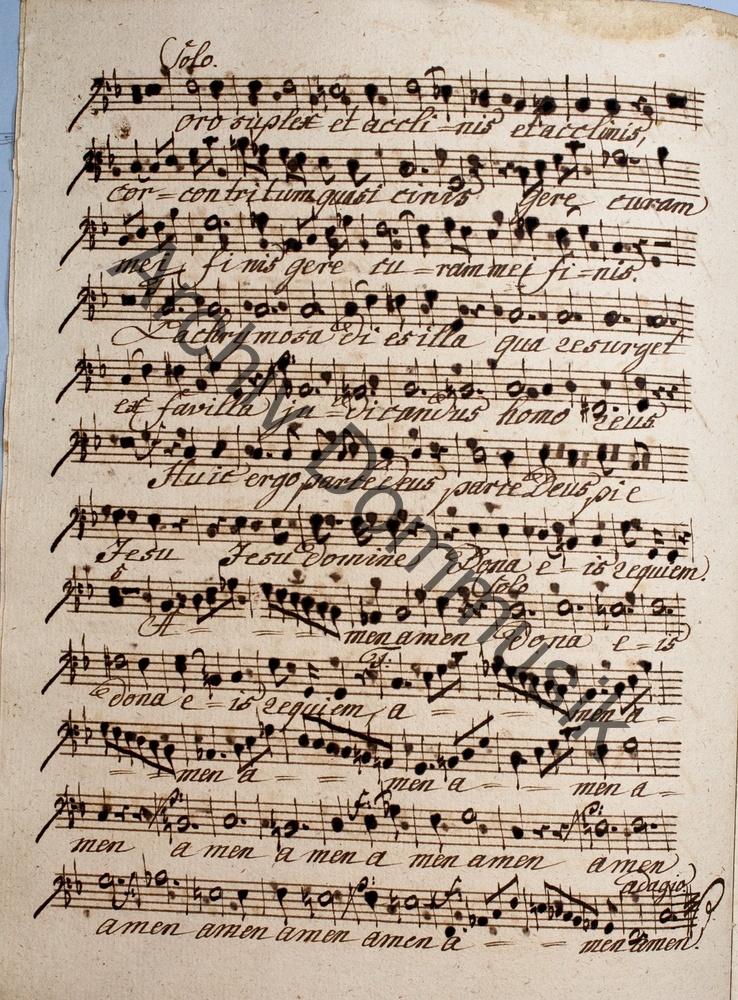 Solo.
oro suplex et accli=nis et acclinis,
cor=contritum quasi cinis gere curam
mei finis gere cu=ram mei fi=nis.
Lachrymosa di es illa qua resurget
ex favilla ju=dicandus homo reus
Huic ergo parte Deus parte Deus pi e
Jesu Jesu domine Dona e=is requiem.
5 Solo
A = = = men amen Dona e=is
T:
dona e=is requiem, a = = = men a=
= = = men a = = = men a = = men a=
p: f: p:
men a men a men a men amen amen
adagio.
amen amen amen amen a = = men amen.
Archiv Dommusik